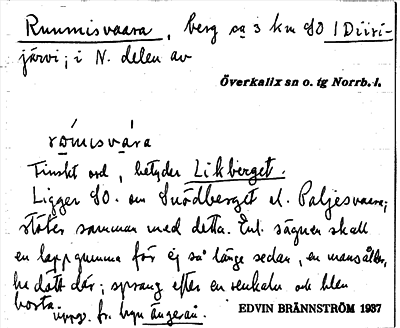 Ruumisvaara, berg ca 3 km SO l Diiri-
järvi; i N. delen av
Överkalix sn o. tg Norrb. l.
rómisvára
Finskt ord, betyder Likberget.
Ligger SO. om Snödberget el. Paljesvaara;
stöter samman med detta. Enl. sägnen skall
en lappgumma för ej så länge sedan, en mansålder,
ha dött där; sprang efter en renkalv och blev
borta.
uppg. fr. byn Ängeså.
EDVIN BRÄNNSTRÖM 1937